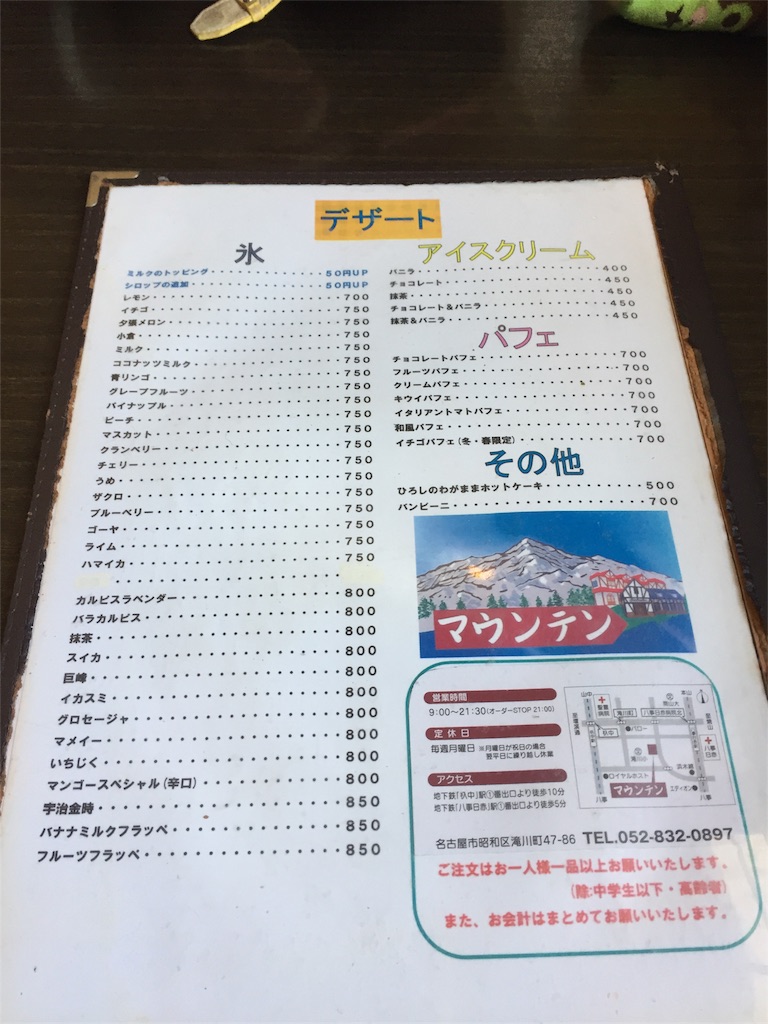 デザート
氷
ミルクのトッピング・・・・・・・・・・50円UP
シロップの追加・・・・・・・・・・50円UP
レモン・・・・・・・・・・700
イチゴ・・・・・・・・・・750
夕張メロン・・・・・・・・・・750
小倉・・・・・・・・・・750
ミルク・・・・・・・・・・750
ココナッツミルク・・・・・・・・・・750
青リンゴ・・・・・・・・・・750
グレープフルーツ・・・・・・・・・・750
パイナップル・・・・・・・・・・750
ピーチ・・・・・・・・・・750
マスカット・・・・・・・・・・750
クランベリー・・・・・・・・・・750
チェリー・・・・・・・・・・750
うめ・・・・・・・・・・750
ザクロ・・・・・・・・・・750
ブルーベリー・・・・・・・・・・750
ゴーヤ・・・・・・・・・・750
ライム・・・・・・・・・・750
ハマイカ・・・・・・・・・・750
カルピスラベンダー・・・・・・・・・・800
バラカルピス・・・・・・・・・・800
抹茶・・・・・・・・・・800
スイカ・・・・・・・・・・800
巨峰・・・・・・・・・・800
イカスミ・・・・・・・・・・800
グロセージャ・・・・・・・・・・800
マメイー・・・・・・・・・・800
いちじく・・・・・・・・・・800
マンゴースペシャル(辛口)・・・・・・・・・・800
宇治金時・・・・・・・・・・850
バナナミルクフラッペ・・・・・・・・・・850
フルーツフラッペ・・・・・・・・・・850
アイスクリーム
バニラ・・・・・・・・・・400
チョコレート・・・・・・・・・・450
抹茶・・・・・・・・・・450
チョコレート&バニラ・・・・・・・・・・450
抹茶&バニラ・・・・・・・・・・450
パフェ
チョコレートパフェ・・・・・・・・・・700
フルーツパフェ・・・・・・・・・・700
クリームパフェ・・・・・・・・・・700
キウイパフェ・・・・・・・・・・700
イタリアントマトパフェ・・・・・・・・・・700
和風パフェ・・・・・・・・・・700
イチゴパフェ(冬・春限定)・・・・・・・・・・700
その他
ひろしのわがままホットケーキ・・・・・・・・・・500
バンビーニ・・・・・・・・・・700
マウンテン
営業時間
9:00〜21:30(オーダーSTOP 21:00)
定休日
毎週月曜日 ※月曜日が祝日の場合
翌平日に繰り越し休業
アクセス
地下鉄「いりなか」駅①番出口より徒歩10分
地下鉄「八事日赤」駅①番出口より徒歩5分
山中
本山
滝川町
八事日赤病院北
パロー
滝川小
ロイヤルホスト
マウンテン
エディオン
八事
八事
八事日赤
名古屋市昭和区滝川町47-86 TEL.052-832-0897
ご注文はお一人様一品以上お願いいたします。
(除:中学生以下・高齢者)
また、お会計はまとめてお願いいたします。